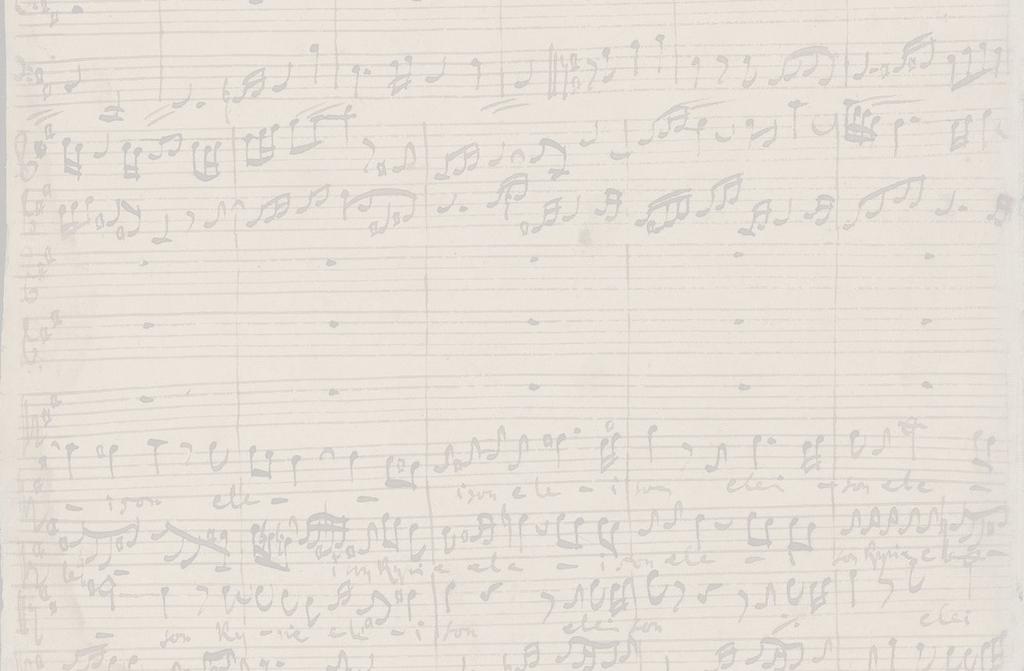 - ison ele - - ison ele - ison elei - son ele -
ison Kyrie ele - ison ele - i son Kyrie elei -
- son Ky - rie ele - i son elei son elei